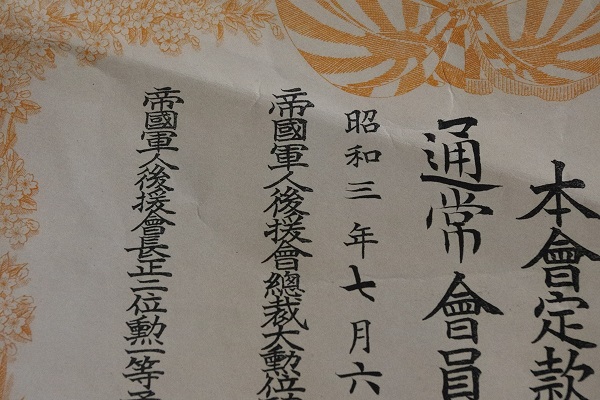 本會定款
通常會員
昭和三年七月六
帝國軍人後援會總裁大勲位
帝國軍人後援會長正二位勲一等子